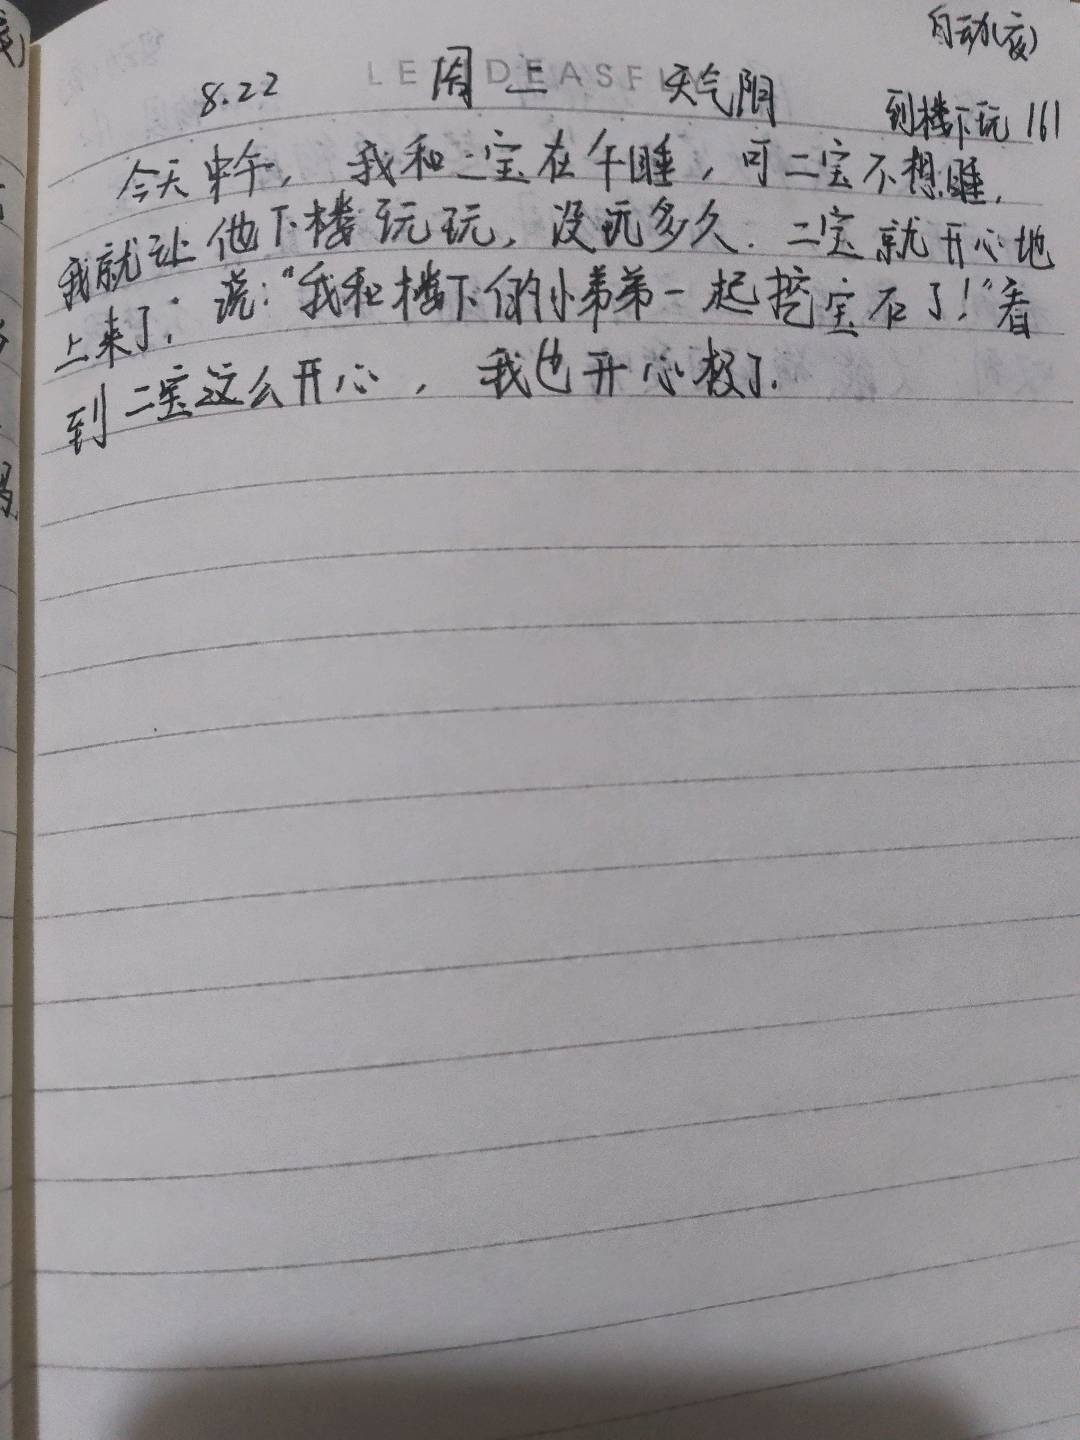 自动(夜)
8.22 周二 天气阴
到楼下玩 161
今天中午，我和二宝在午睡，可二宝不想睡，
我就让他下楼玩玩，没玩多久.二宝就开心地
上来了，说：“我和楼下的小弟弟一起挖宝石了！”看
到二宝这么开心，我也开心极了.